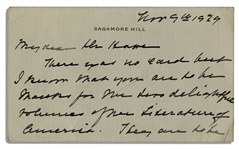 Nov 9th 1929
SAGAMORE HILL
My dear Mr Howe
There was no card but
I know that you are to be
thanked for the two delightful
volumes of the Literature of
America. They are to be